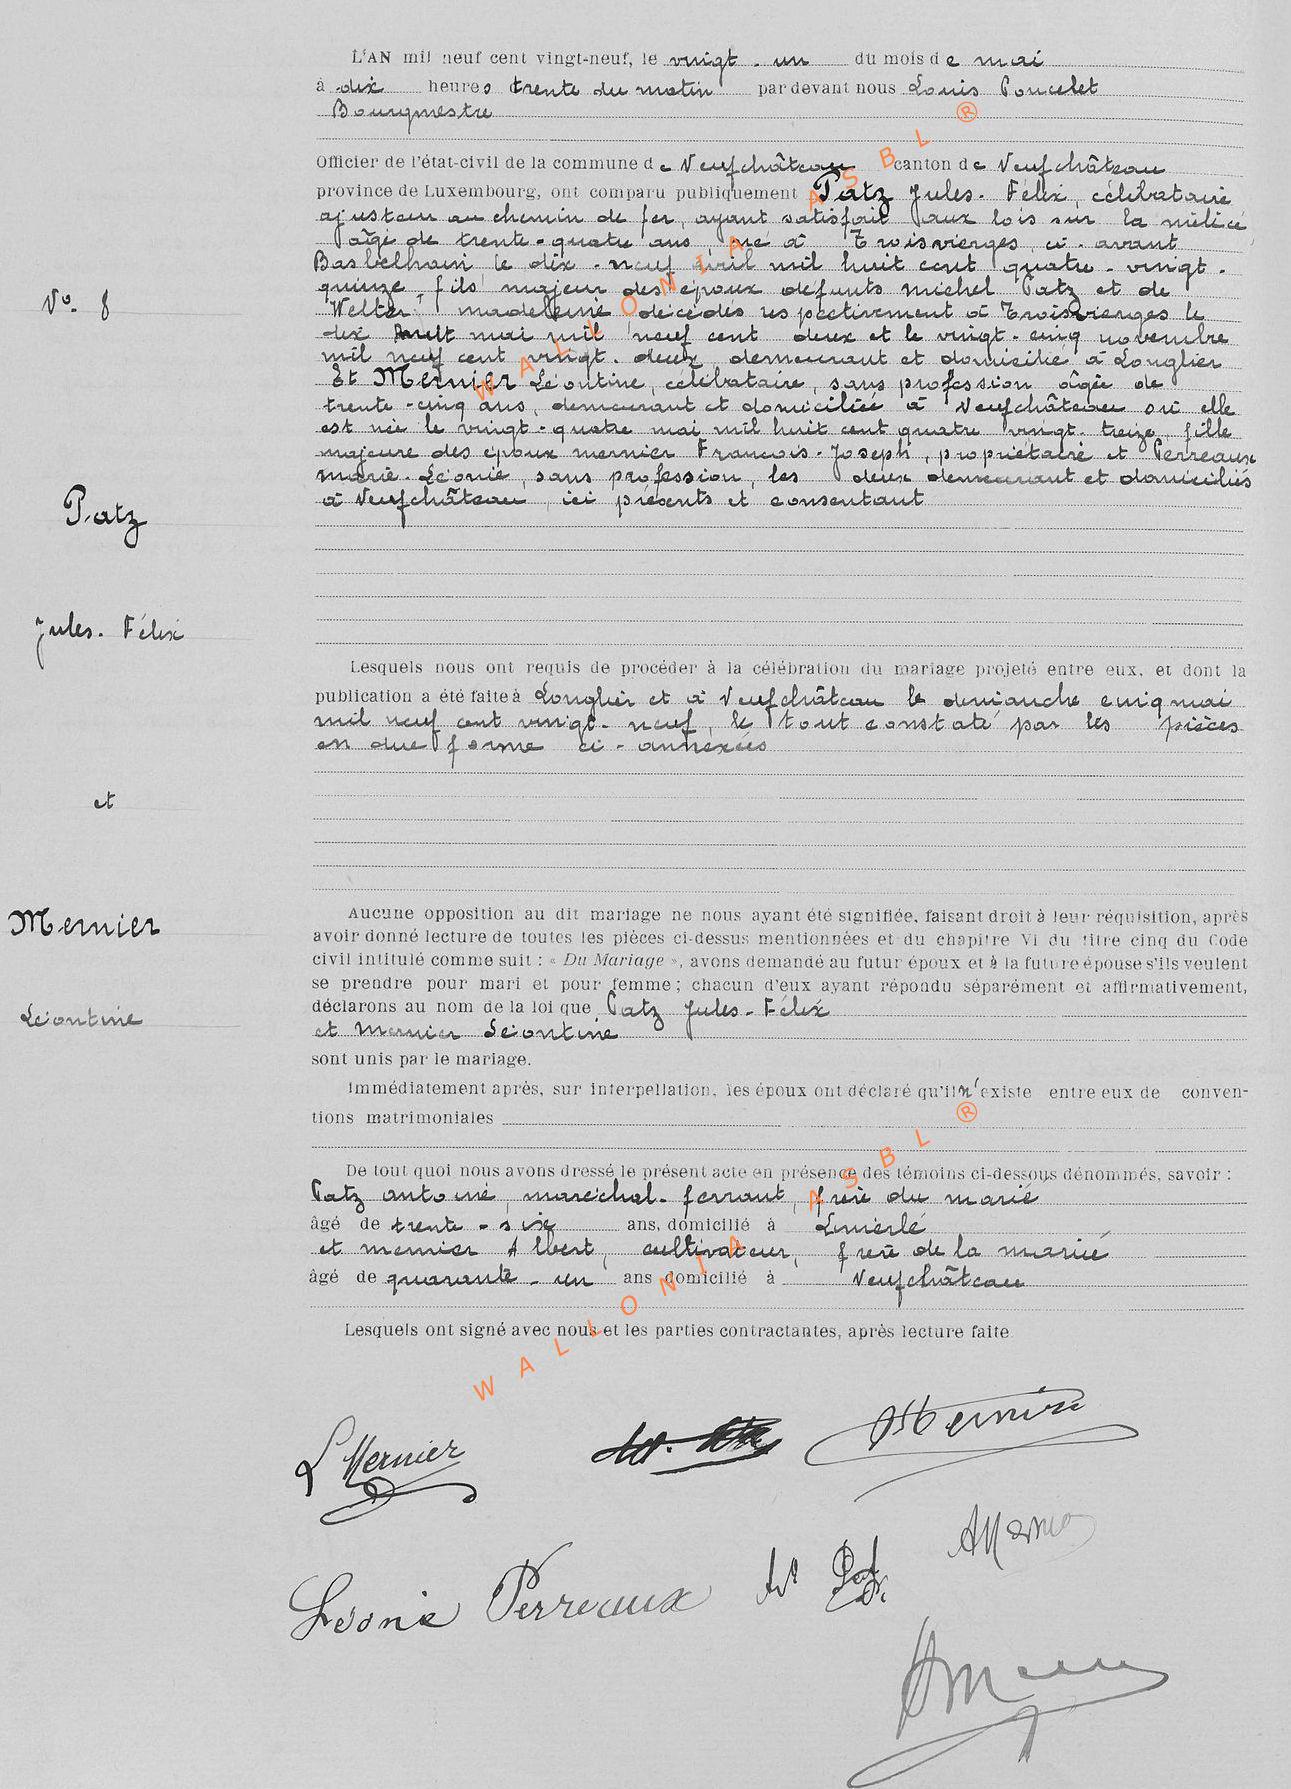 L'AN mil neuf cent vingt-neuf, le vingt-un du mois de mai
à dix heures trente du matin par devant nous Louis Poncelet
Bourgmestre
Officier de l'état-civil de la commune de Neufchâteau canton de Neufchâteau
province de Luxembourg, ont comparu publiquement Patz Jules-Félix, célibataire
ajusteur au chemin de fer, ayant satisfait aux lois sur la milice
âgé de trente-quatre ans, né à Troisvierges, ci-avant
Basbelhain, le dix-neuf avril mil huit cent quatre-vingt-
N° 8
quinze fils majeur des époux défunts Michel Patz et de
Welter Madeleine décédés respectivement à Troisvierges le
dix huit mai mil neuf cent deux et le vingt-cinq novembre
mil neuf cent vingt-deux, demeurant et domicilié à Longlier
Et Mernier Léontine, célibataire, sans profession âgée de
trente-cinq ans, demeurant et domiciliée à Neufchâteau où elle
est née le vingt-quatre mai mil huit cent quatre vingt-treize, fille
majeure des époux Mernier François-Joseph, propriétaire et Perreaux
Marie-Léonie, sans profession, les deux demeurant et domiciliés
à Neufchâteau, ici présents et consentant
Patz
Jules-Félix
Lesquels nous ont requis de procéder à la célébration du mariage projeté entre eux, et dont la
publication a été faite à Longlier et à Neufchâteau le dimanche cinq mai
mil neuf cent vingt-neuf, le tout constaté par les pièces
en due forme ci-annexées
et
Mernier
Léontine
Aucune opposition au dit mariage ne nous ayant été signifiée, faisant droit à leur réquisition, après
avoir donné lecture de toutes les pièces ci-dessus mentionnées et du chapitre VI du titre cinq du Code
civil intitulé comme suit : « Du Mariage », avons demandé au futur époux et à la future épouse s'ils veulent
se prendre pour mari et pour femme ; chacun d'eux ayant répondu séparément et affirmativement,
déclarons au nom de la loi que Patz Jules-Félix
et Mernier Léontine
sont unis par le mariage.
Immédiatement après, sur interpellation, les époux ont déclaré qu'il n'existe entre eux de conven-
tions matrimoniales
De tout quoi nous avons dressé le présent acte en présence des témoins ci-dessous dénommés, savoir :
Patz Antoine, maréchal-ferrant, frère du marié
âgé de trente-six ans, domicilié à Limerlé
et Mernier Albert, cultivateur, frère de la mariée
âgé de quarante-un ans domicilié à Neufchâteau
Lesquels ont signé avec nous et les parties contractantes, après lecture faite
L Mernier
Mernier
Léonie Perreaux
WALLONIA ASBL ®
WALLONIA ASBL ®